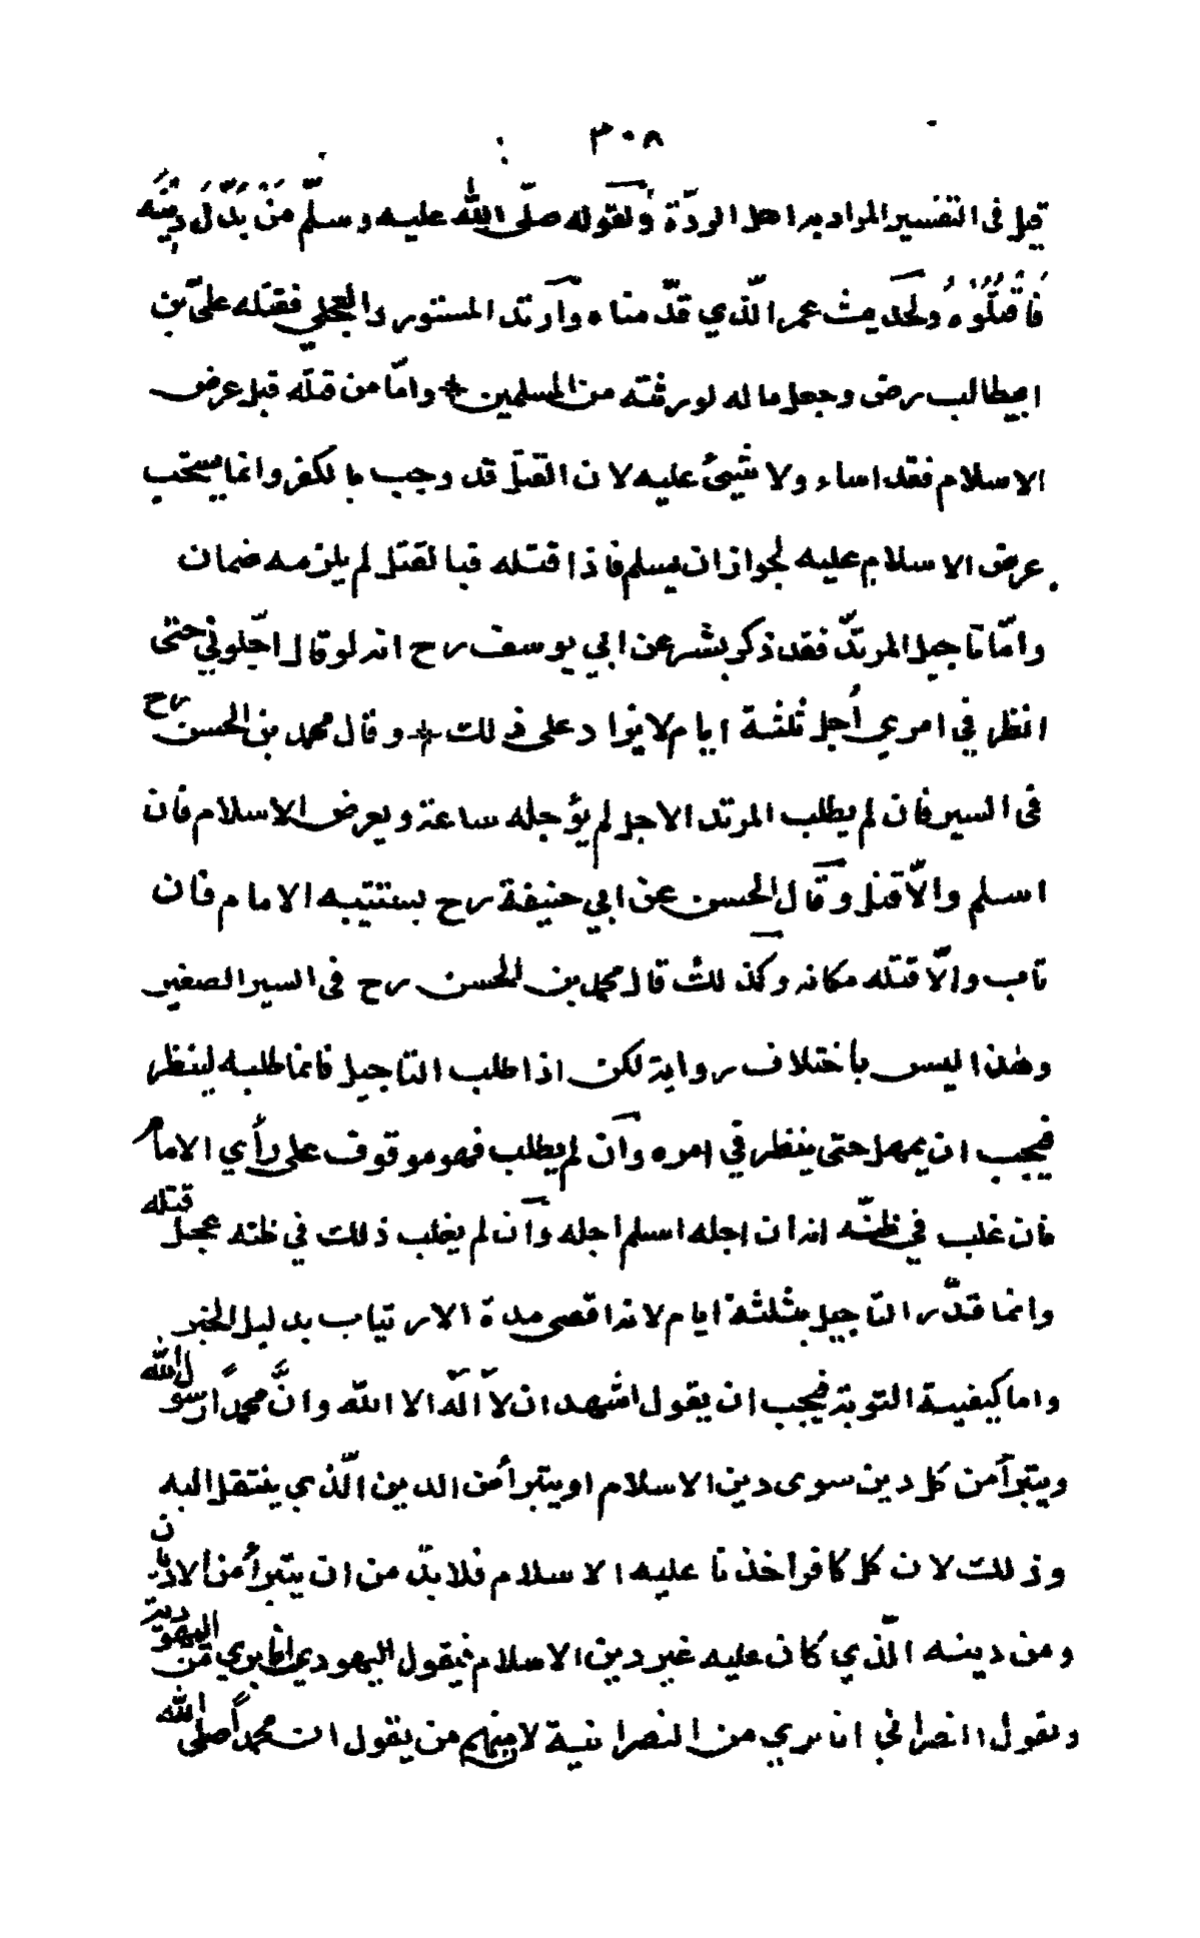 ٣٠٨
قيل فى التفسير المراد به اهل الردّة ولقوله صلّى الله عليه وسلّم مَنْ بَدَّلَ دِينَه
فَاقْتُلُوْهُ ولحديث عمر الّذي قدّمناه وارتد المستورد العجلي فقتله علىّ بن
ابيطالب رضى وجعل ماله لورثته من المسلمين وامّا من قتله قبل عرض
الاسلام فقد اساء ولا شيئ عليه لان القتل قد وجب بالكفر وانما يستحب
عرض الاسلام عليه لجواز ان يسلم فاذا قتله قبالقتل لم يلزمه ضمان
وامّا تاجيل المرتدّ فقد ذكر بشر عن ابي يوسف رح انه لو قال اجّلوني حتى
انظر في امري أجل ثلثة ايام لا يزاد على ذلك وقال محمد بن الحسن رح
فى السير فان لم يطلب المرتد الاجل لم يؤجله ساعة ويعرض الاسلام فان
اسلم والّا قتل وقال الحسن عن ابي حنيفة رح يستتيبه الامام فان
تاب والّا قتله مكانه وكذلك قال محمد بن الحسن رح فى السير الصغير
وهذا ليس بأختلاف رواية لكن اذا طلب التاجيل فانما طلبه لينظر
فيجب ان يمهل حتى ينظر في امره وان لم يطلب فهو موقوف على رأي الامام
فان غلب في ظنّه انه ان اجله اسلم اجله وان لم يغلب ذلك في ظنه عجل قتله
وانما قدّر التاجيل بثلثة ايام لانه اقصى مدة الارتياب بدليل الخبر
واما كيفية التوبة فيجب ان يقول اشهد ان لا اله الا الله وانَّ محمدًا رسول الله
ويتبرأ من كل دين سوى دين الاسلام او يتبرأ من الدين الّذي ينتقل اليه
وذلك لان كل كافر اخذنا عليه الاسلام فلا بدّ من ان يتبرأ من الاديان
ومن دينه الّذي كان عليه غير دين الاسلام فيقول اليهودي انا بري من اليهودية
ويقول النصراني انا بري من النصرانية لا منهم من يقول ان محمداً صلى الله